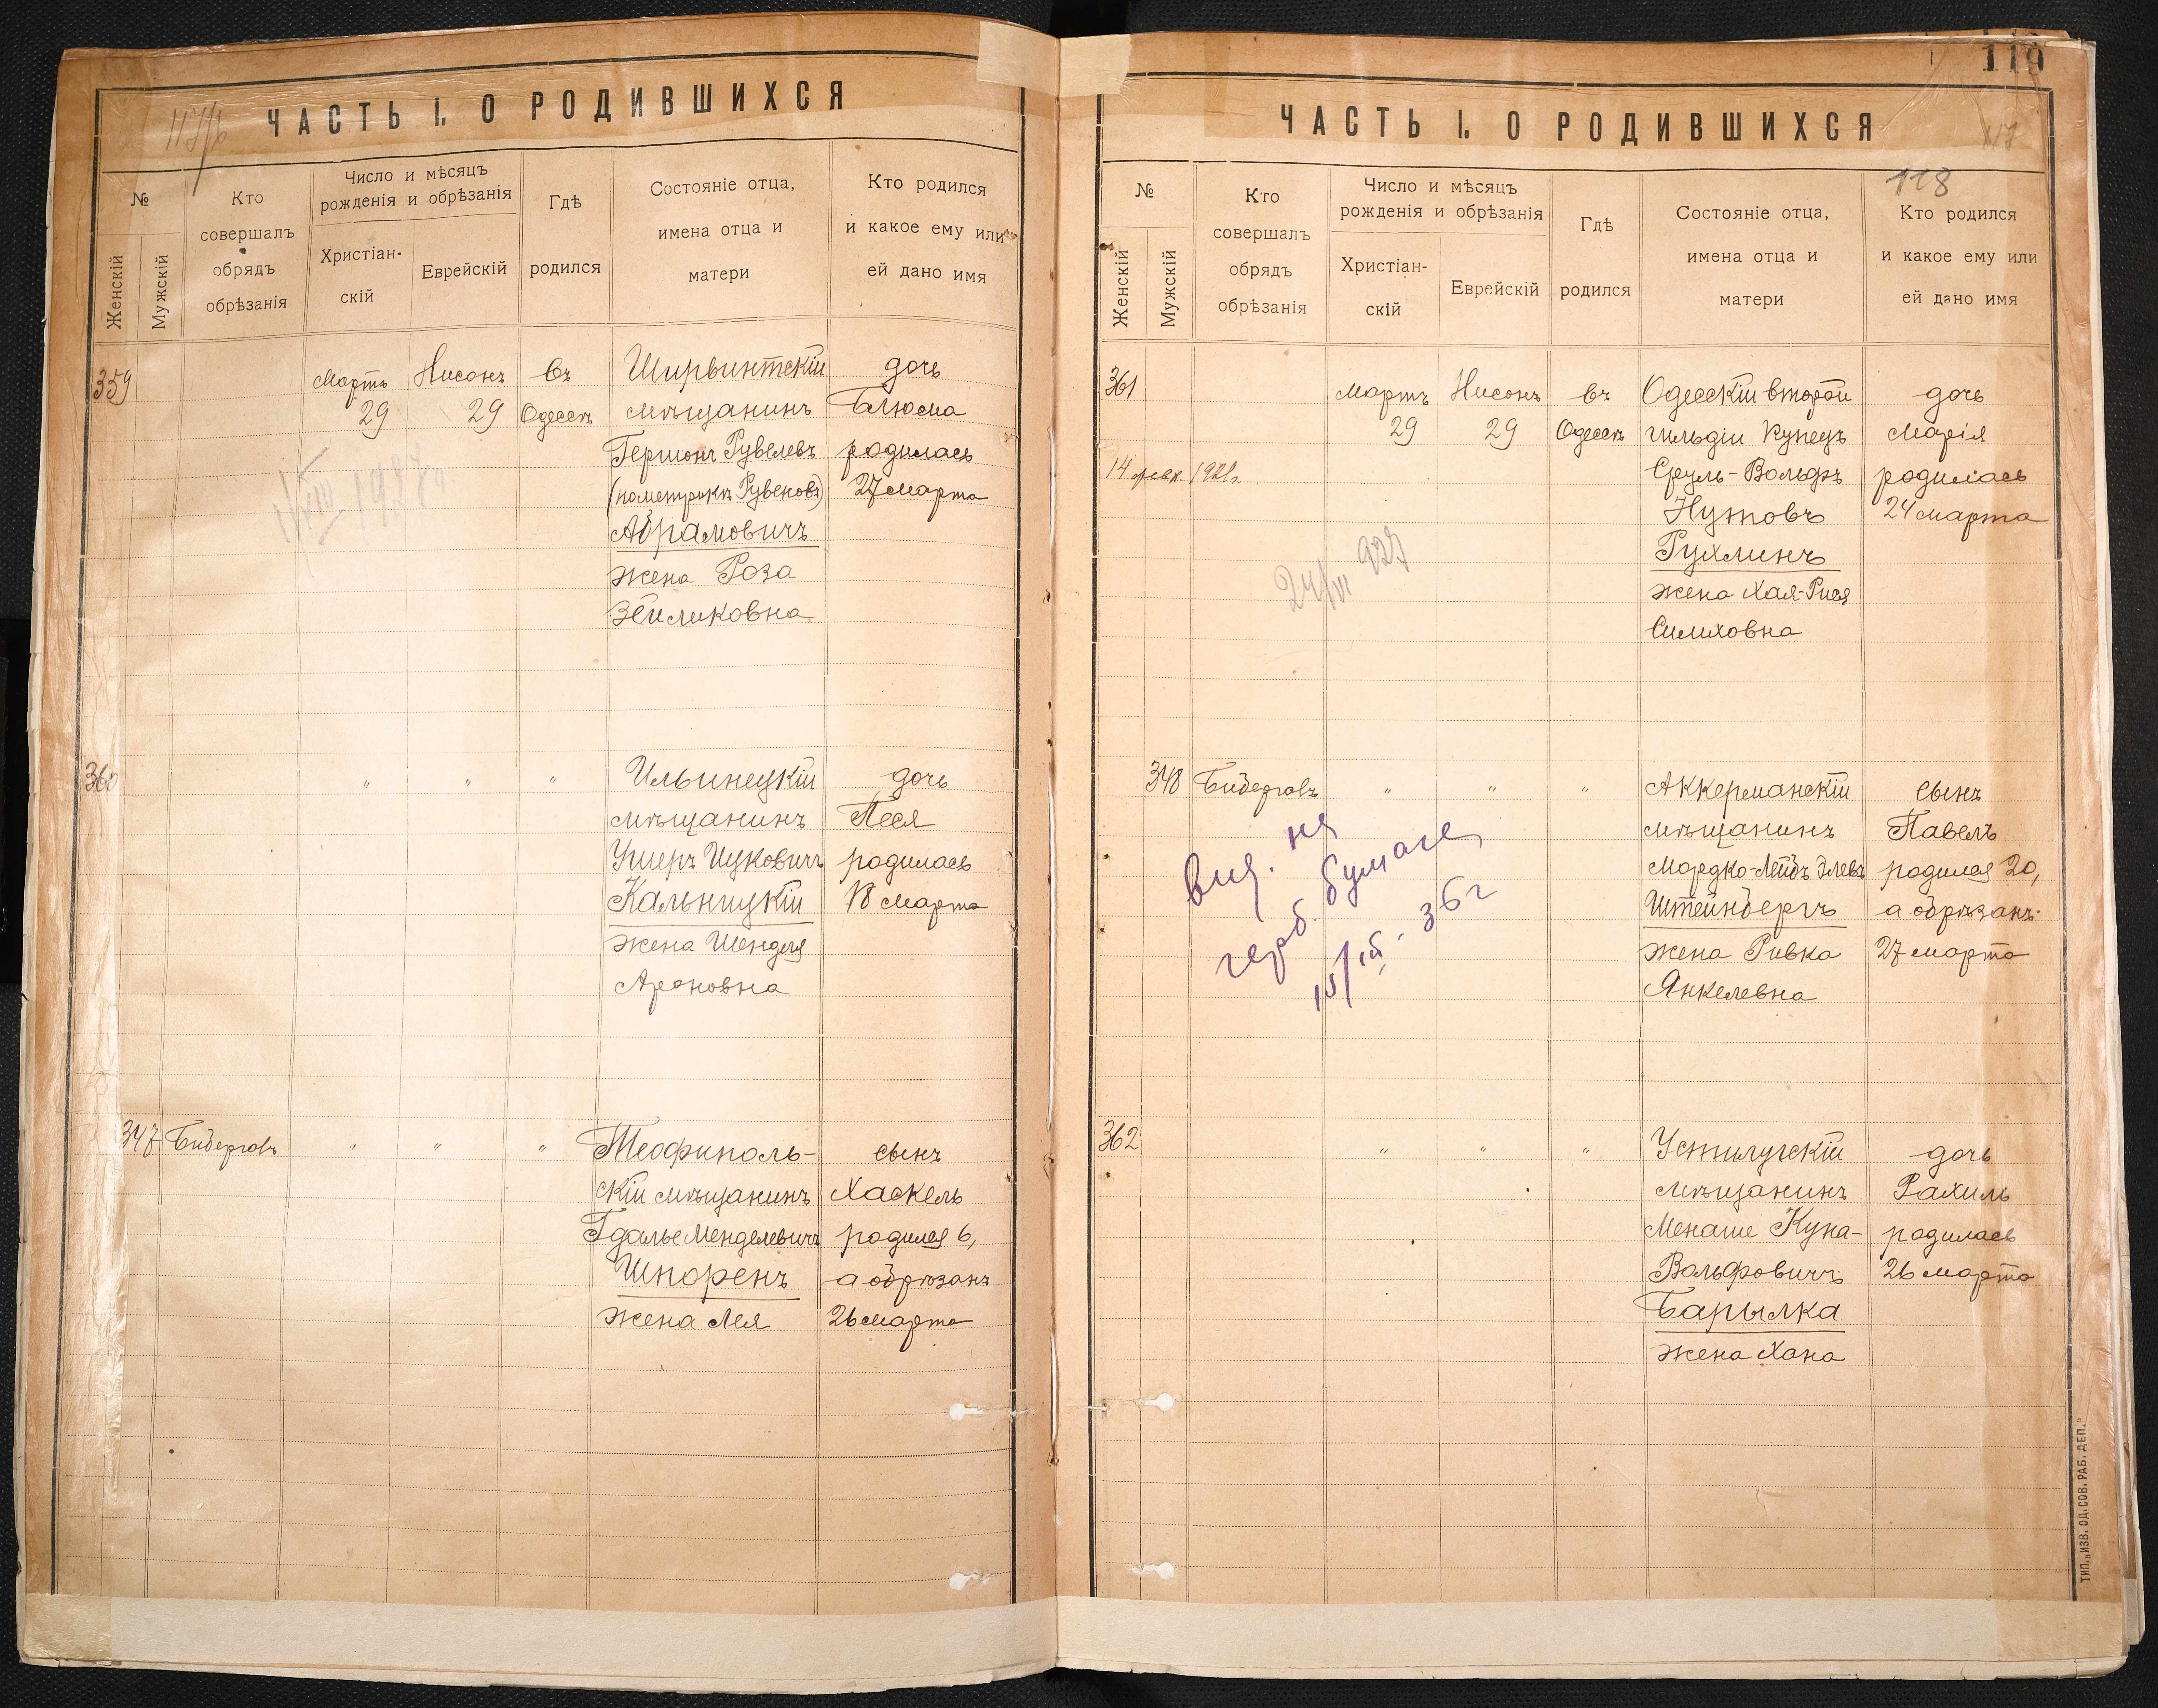 ЧАСТЬ I. О РОДИВШИХСЯ
№
Женскій
Мужскій
Кто
совершалъ
обрядъ
обрѣзанія
Число и мѣсяцъ
рожденія и обрѣзанія
Христіан-
скій
Еврейскій
Гдѣ
родился
Состояніе отца,
имена отца и
матери
Кто родился
и какое ему или
ей дано имя
359
Мартъ
29
Нисонъ
29
въ
Одессѣ
Ширвинтскій
мѣщанинъ
Гершонъ Рувелевъ
(по метрикѣ Рувеновъ)
Абрамовичъ
жена Роза
Зейликовна
дочь
Блюма
родилась
27 марта
360
" " "
Ильинецкій
мѣщанинъ
Ушеръ Ицковичъ
Кальницкій
жена Шендля
Ароновна
дочь
Песя
родилась
18 марта
347 Бидерговъ " " "
Теофиполь-
скій мѣщанинъ
Гдалье Менделевичъ
Шпоренъ
жена Лея
сынъ
Хаскель
родился 6,
а обрѣзанъ
26 марта
119
117
118
ЧАСТЬ I. О РОДИВШИХСЯ
№
Женскій
Мужскій
Кто
совершалъ
обрядъ
обрѣзанія
Число и мѣсяцъ
рожденія и обрѣзанія
Христіан-
скій
Еврейскій
Гдѣ
родился
Состояніе отца,
имена отца и
матери
Кто родился
и какое ему или
ей дано имя
361
14 февр. 1921г.
Мартъ
29
Нисонъ
29
въ
Одессѣ
Одесскій второй
гильдіи Купецъ
Сруль-Вольфъ
Нутовъ
Рухлинъ
жена Хая-Рися
Симховна
дочь
Марія
родилась
24 марта
24/VI 927
348 Бидерговъ " " "
Аккерманскій
мѣщанинъ
Мордко-Лейбъ Элевъ
Штейнбергъ
жена Ривка
Янкелевна
сынъ
Павелъ
родился 20,
а обрѣзанъ
27 марта
выд. на
герб. бумаге
36 г
362
" " "
Устилугскій
мѣщанинъ
Менаше Куна-
Вольфовичъ
Барылка
жена Хана
дочь
Рахиль
родилась
26 марта
ТИП. „ИЗВ. ОД. СОВ. РАБ. ДЕП."